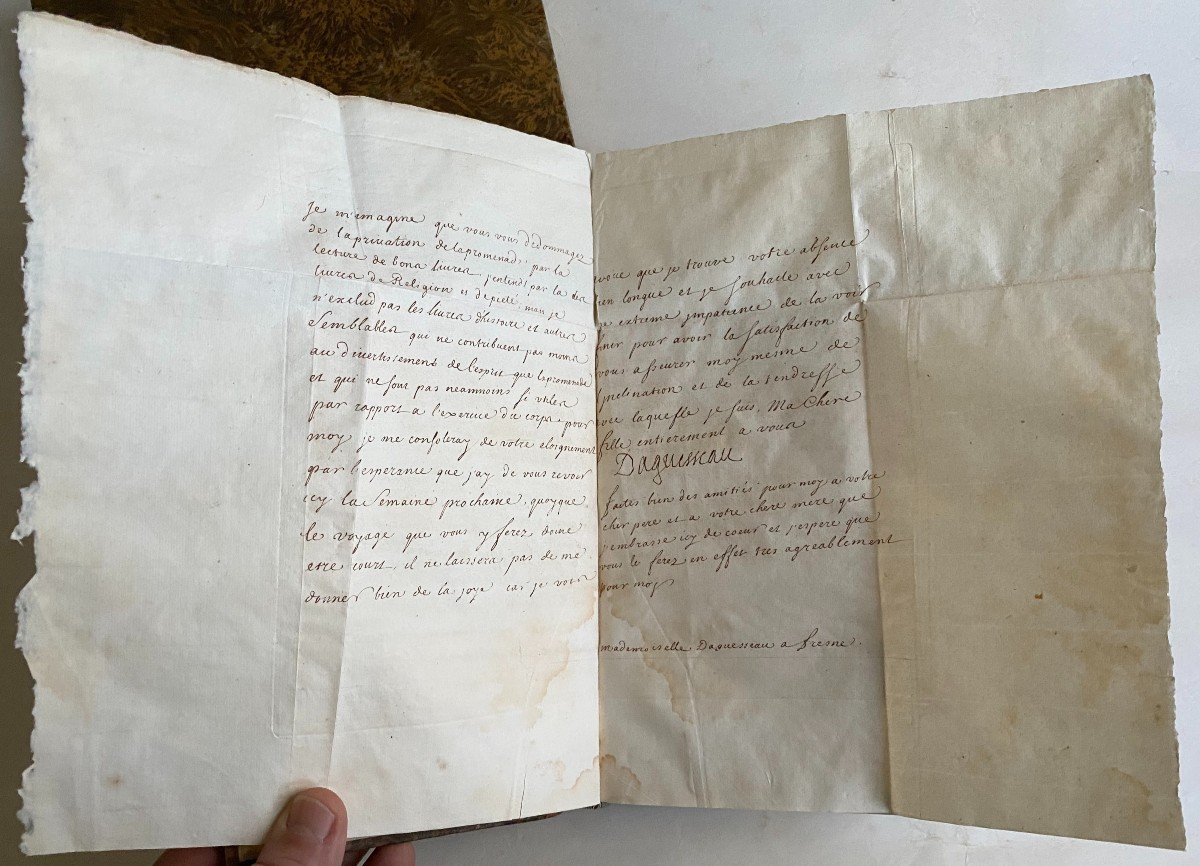 Je m'imagine que vous vous dedommagez
de la privation de la promenade, par la
lecture de bons livres, j'entends par la des
livres de Religion et de pieté, mais je
n'exclud pas les livres d'histoire et autres
semblables qui ne contribuent pas moins
au divertissement de l'esprit que la promenade
et qui ne sont pas neanmoins si utiles
par rapport a l'exercice du corps, pour
moy je me consoleray de votre eloignement
par l'esperance que jay de vous revoir
icy la semaine prochaine, quoyque
le voyage que vous y ferez doive
etre court, il ne laissera pas de me
donner bien de la joye car je vous
avoue que je trouve votre absence
bien longue et je souhaite avec
extreme impatiance de la voir
finer pour avoir la satisfaction de
vous asseurer moy mesme de
inclination et de la tendresse
avec laquelle je suis, Ma Chere
fille entierement a vous
Daguesseau
faites bien des amitiés pour moy a votre
cher pere et a votre chere mere que
j'embrasse icy de coeur et j'espere que
vous le ferez en effet tres agreablement
pour moy
mademoiselle Daguesseau a fresne.